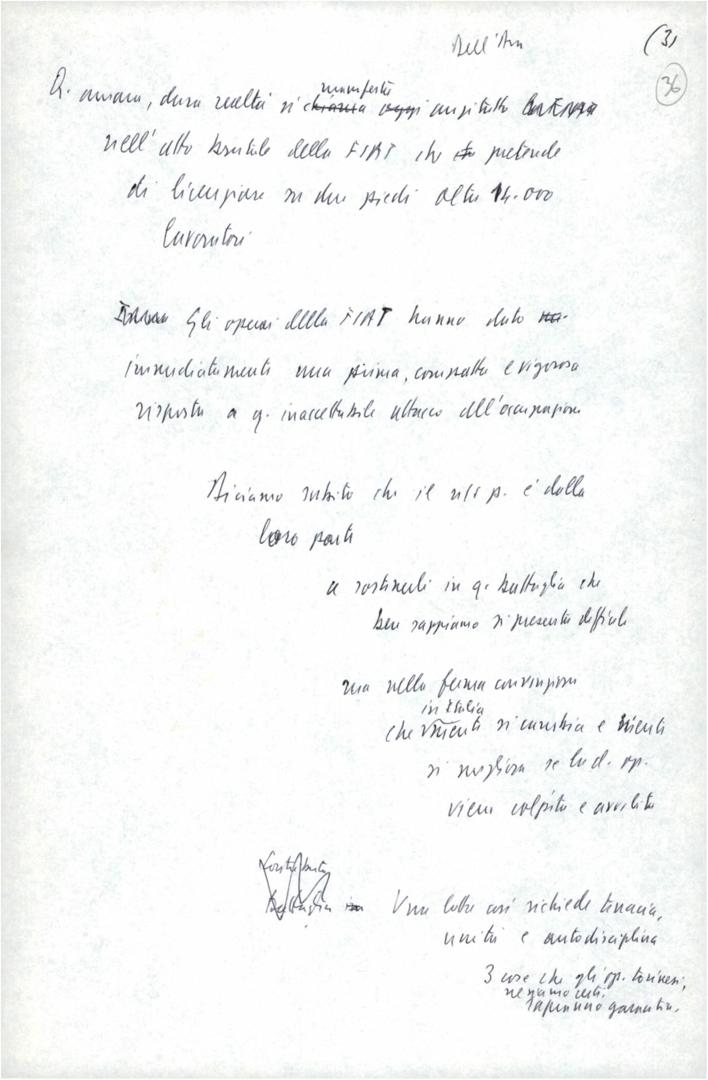 Dell'Arm
(3)
36
Q. amara, dura realtà si chiama oggi anzitutto
manifesta
nell'atto brutale della FIAT che pretende
di licenziare su due piedi oltre 14.000
lavoratori
Gli operai della FIAT hanno dato
immediatamente una prima, compatta e vigorosa
risposta a q. inaccettabile attacco all'occupazione
Diciamo subito che il ns p. è dalla
loro parte
a sostenerli in q. battaglia che
ben sappiamo si presenta difficile
ma nella ferma convinzione
in Italia
che niente si cambia e niente
si migliora se la cl. op.
viene colpita e avvilita
battaglia Una lotta così richiede tenacia,
unità e autodisciplina
3 cose che gli op. torinesi,
ne siamo certi,
sapranno garantire.